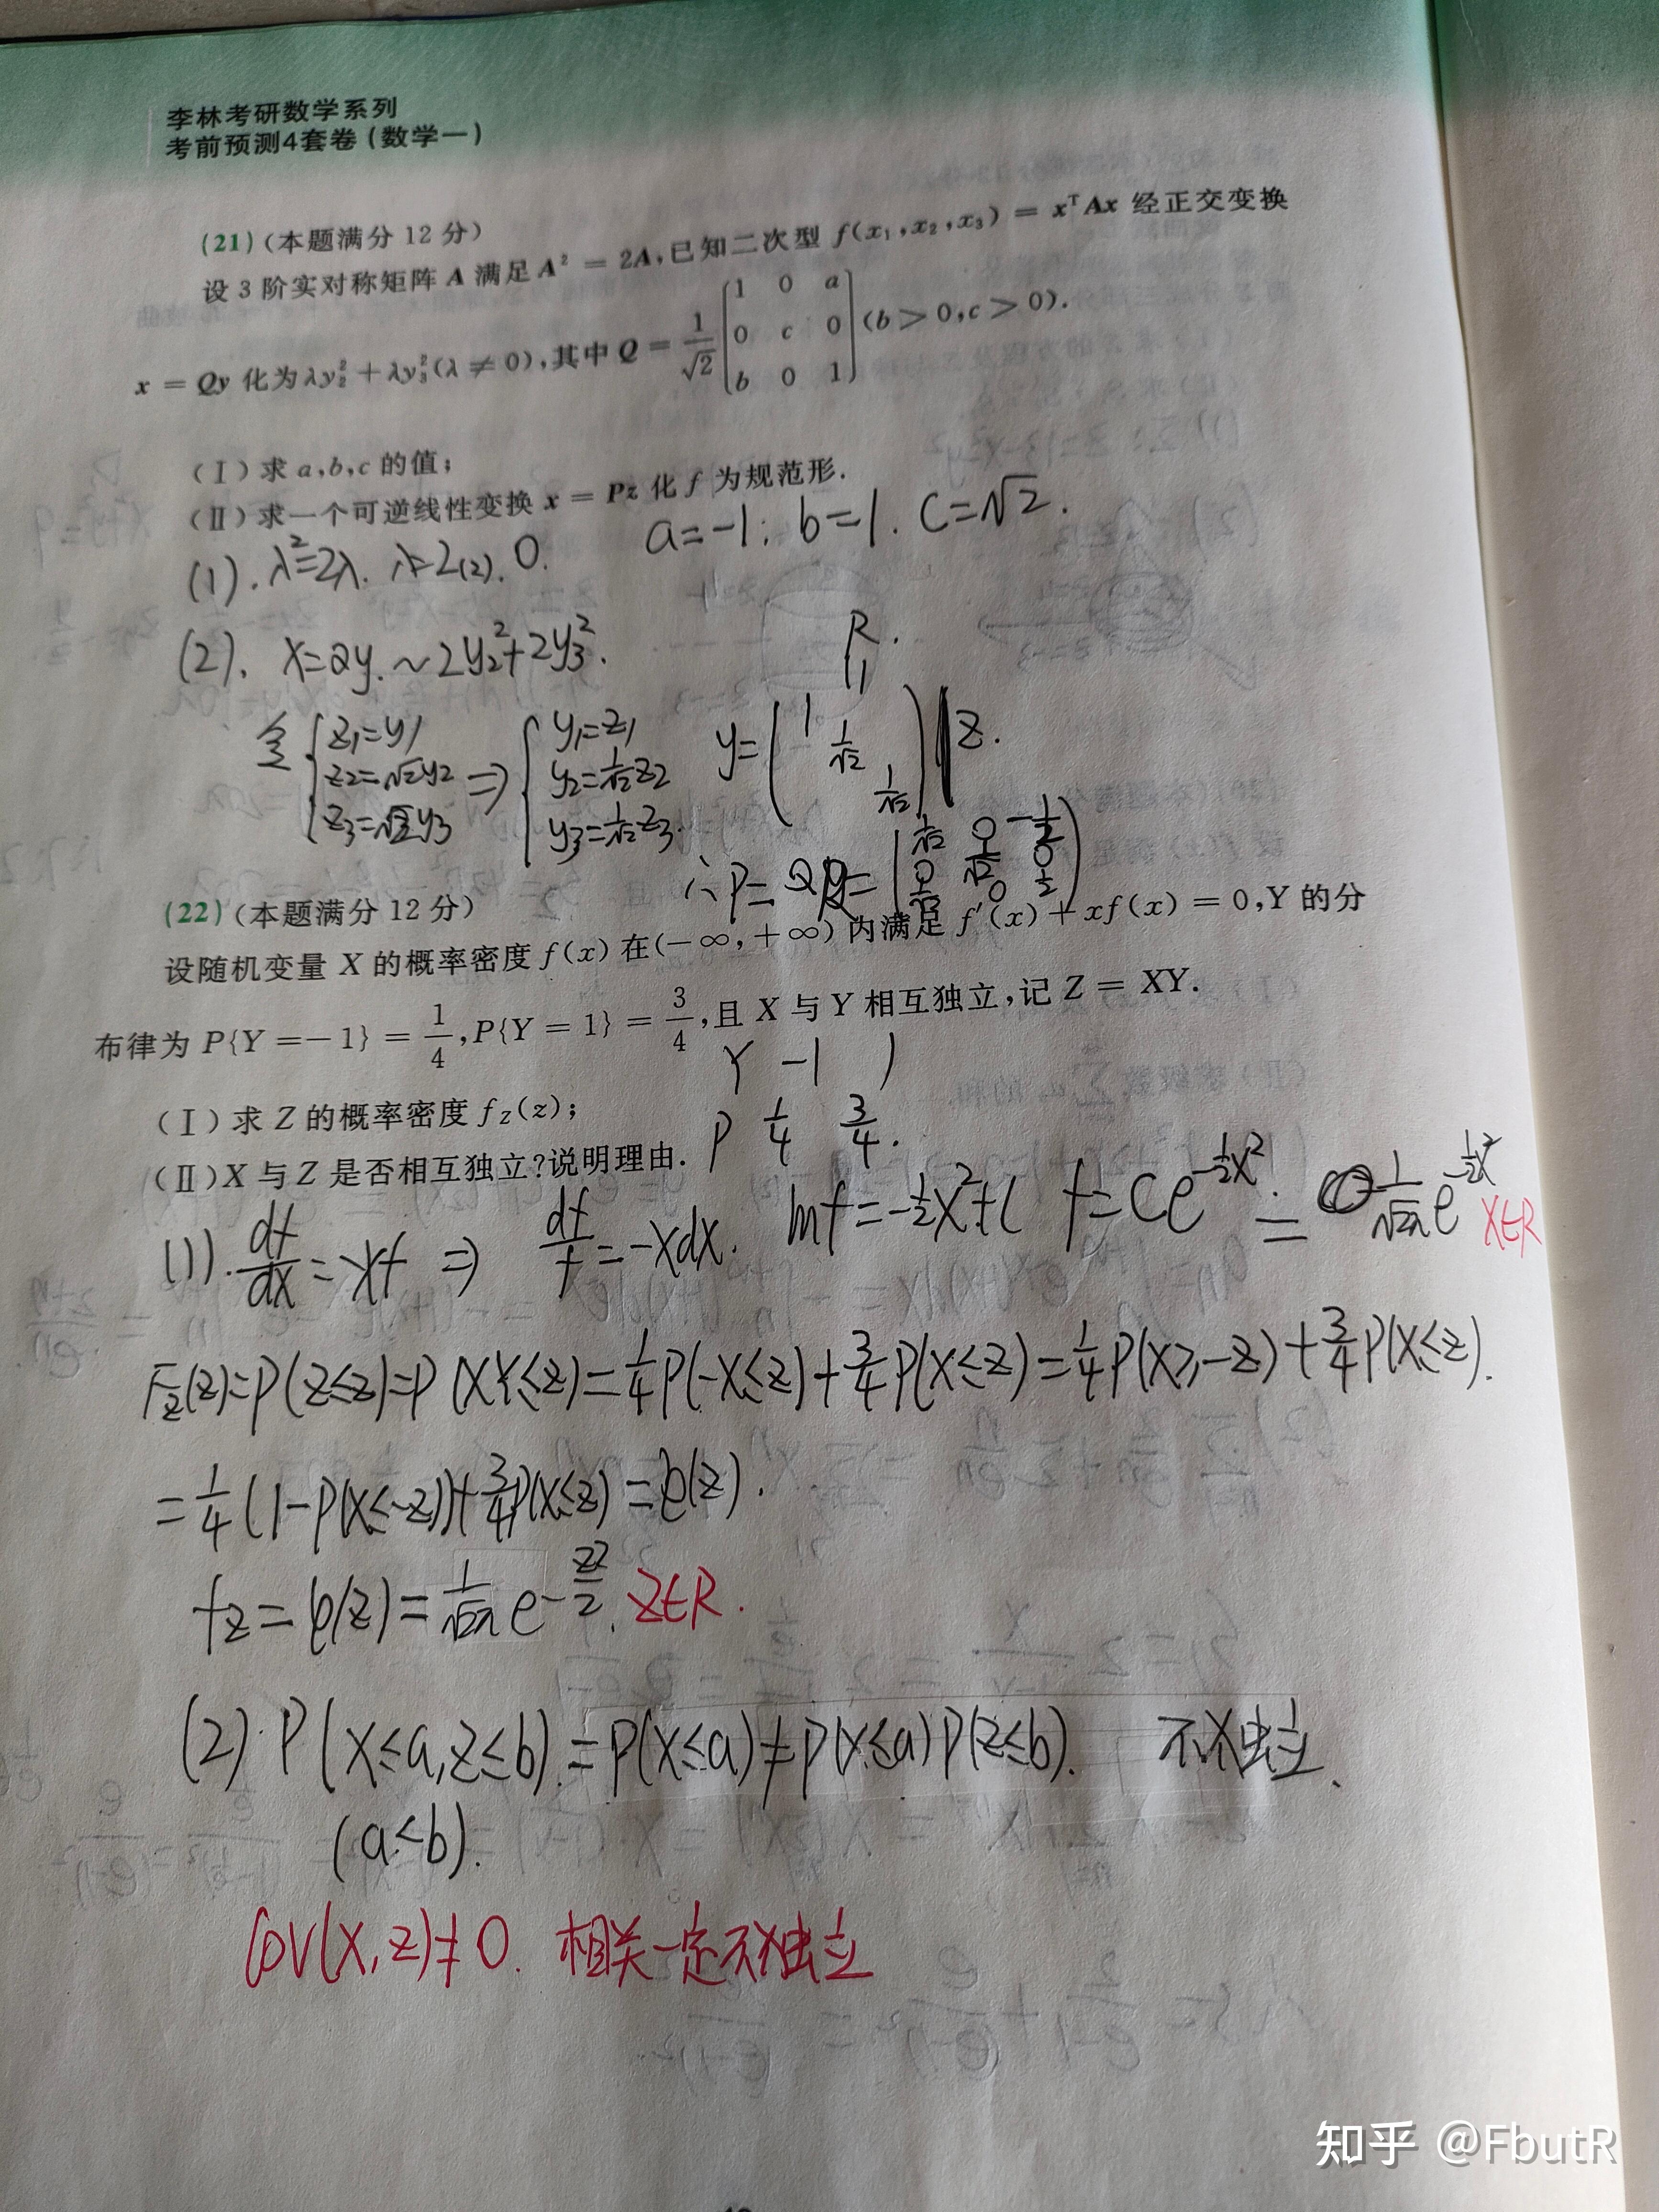 李林考研数学系列
考前预测4套卷(数学一)
(21)(本题满分 12 分)
设 3 阶实对称矩阵 A 满足 A² = 2A,已知二次型 f(x₁,x₂,x₃) = xᵀAx 经正交变换
x = Qy 化为 λy₂² + λy₃²(λ ≠ 0),其中 Q = 1/√2 [1 0 a; 0 c 0; b 0 1] (b > 0,c > 0).
(Ⅰ)求 a,b,c 的值;
(Ⅱ)求一个可逆线性变换 x = Pz 化 f 为规范形.
a=-1; b=1. c=√2.
(1). λ²=2λ. λ=2(2). 0.
(2). x=Qy. ~ 2y₂²+2y₃².
R.
令 { z₁=y₁ z₂=√2y₂ z₃=√2y₃ ⇒ { y₁=z₁ y₂=1/√2 z₂ y₃=1/√2 z₃. y=(1 1/√2 1/√2) z.
∴ P= Q = (1/√2 0 -1/2; 0 1/√2 0; 1/√2 0 1/2)
(22)(本题满分 12 分)
设随机变量 X 的概率密度 f(x) 在(-∞,+∞) 内满足 f'(x) + xf(x) = 0,Y 的分
布律为 P{Y =-1} = 1/4,P{Y = 1} = 3/4,且 X 与 Y 相互独立,记 Z = XY.
Y -1 1
P 1/4 3/4.
(Ⅰ)求 Z 的概率密度 f_Z(z);
(Ⅱ)X 与 Z 是否相互独立?说明理由.
(1). df/dx=-xf ⇒ df/f=-xdx. lnf=-1/2x²+C f=Ce^(-1/2x²). = 1/√2π e^(-1/2x²) x∈R
F_Z(z)=P(Z≤z)=P(XY≤z)=1/4P(-X≤z)+3/4P(X≤z)=1/4P(X≥-z)+3/4P(X≤z).
=1/4(1-P(X≤-z))+3/4P(X≤z)=φ(z).
f_Z=φ(z)=1/√2π e^(-z²/2). Z∈R.
(2). P(X≤a,Z≤b)=P(X≤a)≠P(X≤a)P(Z≤b). 不独立.
(a<b).
COV(X,Z)≠0. 相关一定不独立
知乎 @FbutR